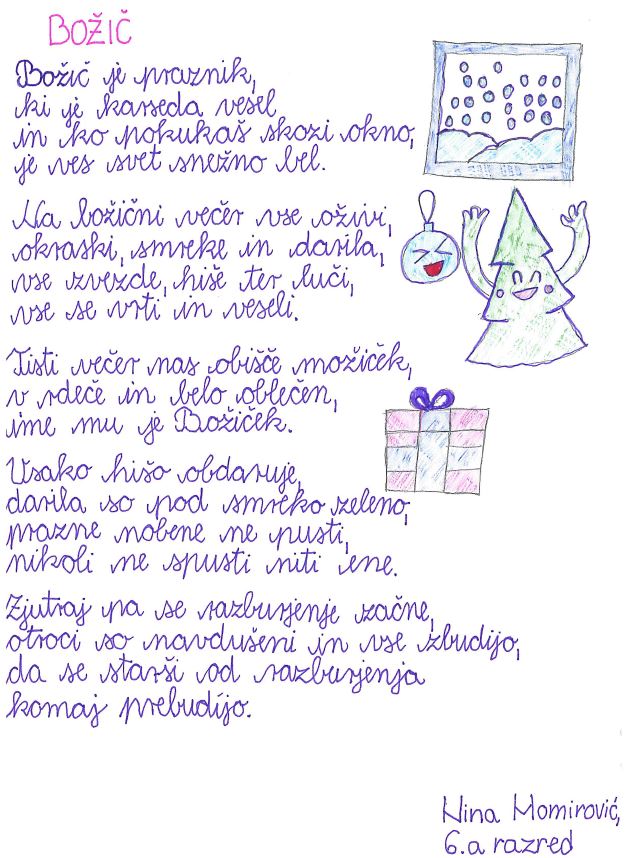 BOŽIČ
Božič je praznik,
ki je karseda vesel
in ko pokukaš skozi okno,
je ves svet snežno bel.
Na božični večer vse oživi,
okraski, smreke in darila,
vse zvezde, hiše ter luči,
vse se vrti in veseli.
Tisti večer nas obišče možiček,
v rdeče in belo oblečen,
ime mu je Božiček.
Vsako hišo obdaruje,
darila so pod smreko zeleno,
prazne nobene ne pusti,
nikoli ne spusti niti ene.
Zjutraj pa se razburjenje začne,
otroci so navdušeni in vse zbudijo,
da se starši od razburjenja
komaj prebudijo.
Nina Momirović,
6.a razred